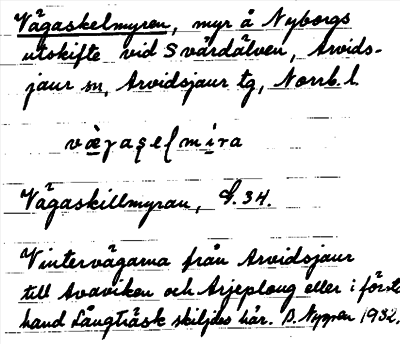 Vägaskelmyren, myr å Nyborgs
utskifte vid Svärdälven, Arvids-
jaur sn, Arvidsjaur tg, Norrb. l.
Vägaskillmyran, S. 34.
Vintervägarna från Arvidsjaur
till Avaviken och Arjeploug eller i första
hand Långträsk skiljdes här. D. Nygren 1932.